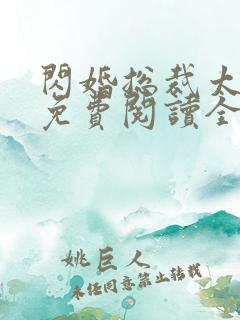 閃婚总裁太
免費閱讀全
姚巨人
未任同意禁止转载